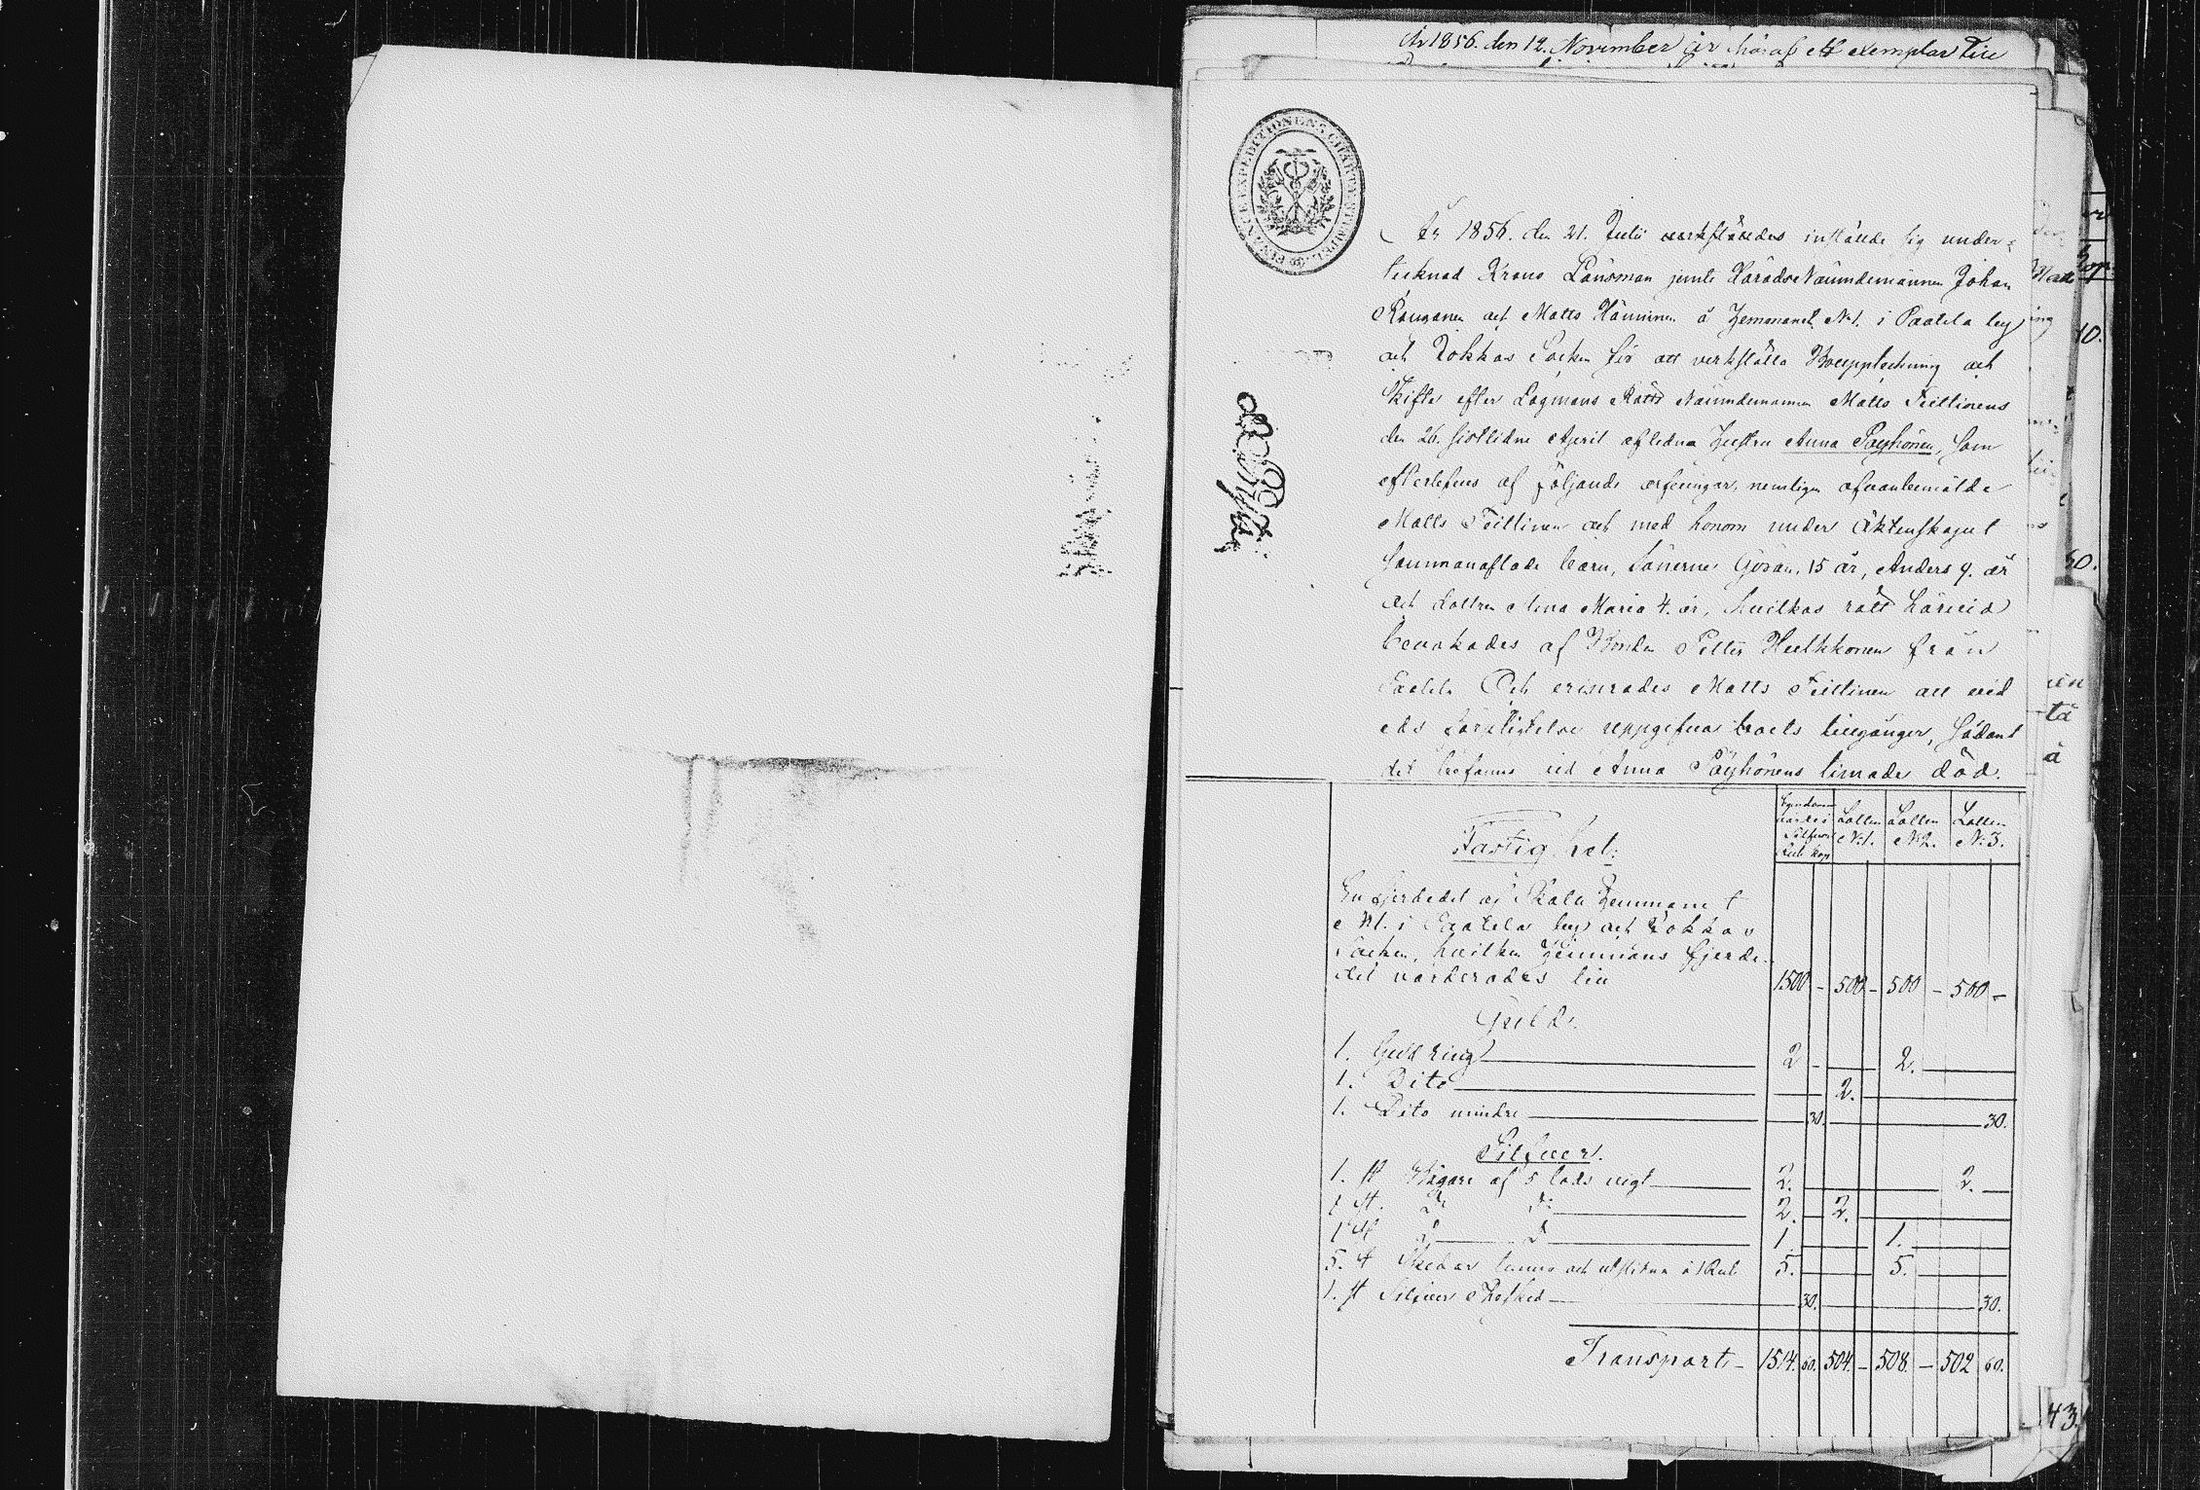 År 1856. den 12. November är häraf ett exemplar till
FINANCE EXPEDITIONENS CHARTÆ STÄMPEL
År 1856. den 21. Julii verkställdes instälde sig under-
tecknad Krono Länsman jemte Härads Nämndemännen Johan
och Matts Hänninen å Hemmanet N:1. i Paatela by
och Jokkas Socken för att verkställa Bouppteckning och
Skifte efter Lagmans Rätts Nämndemannen Matts Teittinens
den 26. sistlidne April aflidna Hustru Anna Päyhönen, som
efterlefves af följande arfvingar, nemligen ofvanbemälde
Matts Teittinen och med honom under äktenskapet
sammanaflade barn, Sönerne Göran, 15 år, Anders 9. år
och dottren Anna Maria 4. år, hvilkas rätt härvid
bevakades af Bonden Petter Heikkonen från
Paatela Och erinrades Matts Teittinen att vid
eds förpligtelse uppgifva boets tillgångar, sådant
det befanns vid Anna Päyhönens timade död.
Lotten Lotten Lotten
N:1. N:2. N:3.
Fastighet:
En fjerdedel af Skatte Hemmanet
N:1. i Paatela by och Jokkas
Socken, hvilken Hemmans fjerde-
del värderades till 1500 - 500 - 500 - 500 -
Guld.
1. Guld ring 2 - 2.
1. Dito 2.
1. Dito mindre 30. 30.
Silfver.
1. st Bägare af 5 lods vigt 2. 2.
1 st. D:o D:o 2. 2.
1 st D:o D:o 1. 1.
5. st Skedar tunna och utslitna à 1 Rub 5. 5.
1. st Silfver Thesked 30. 30.
Transport - 1514. 60. 504. - 508. - 502 60.
43.